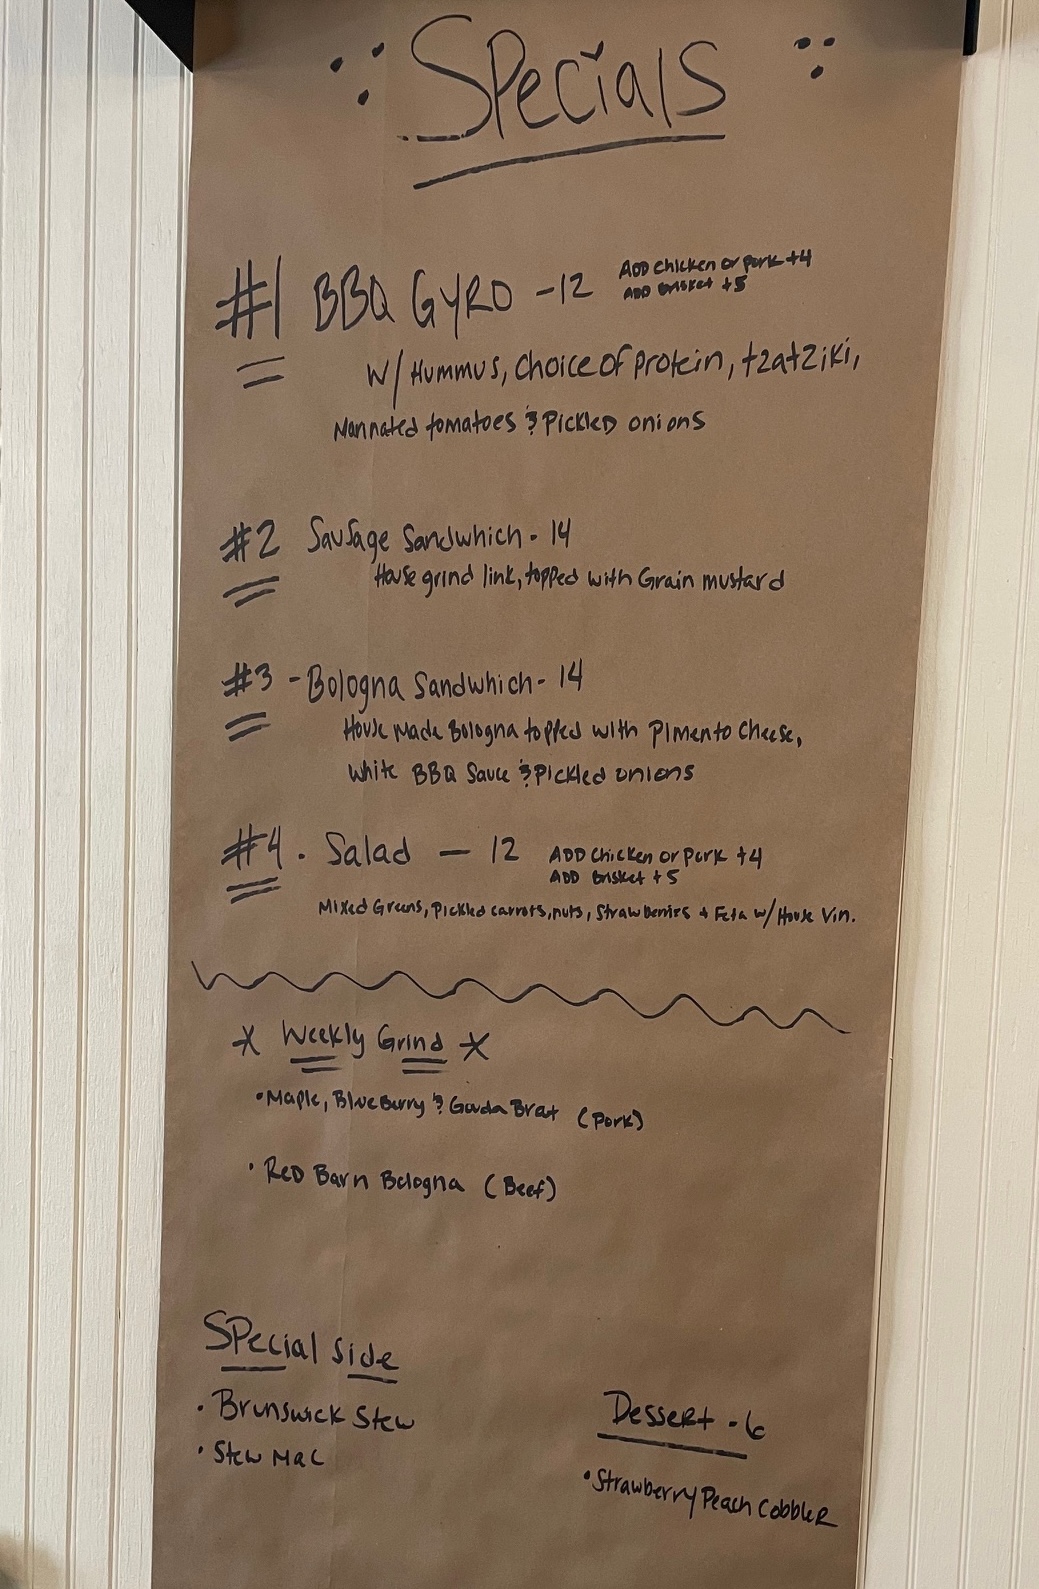 Specials
#1 BBQ GYRO - 12 ADD chicken or pork +4
ADD brisket +5
W/ Hummus, choice of protein, tzatziki,
Marinated tomatoes & Pickled onions
#2 Sausage Sandwhich - 14
House grind link, topped with Grain mustard
#3 - Bologna Sandwhich - 14
House Made Bologna topped with Pimento Cheese,
White BBQ Sauce & Pickled onions
#4. Salad — 12 ADD chicken or pork +4
ADD brisket +5
Mixed Greens, Pickled carrots, nuts, Strawberries + Feta w/ House Vin.
* Weekly Grind *
• Maple, BlueBerry & Gouda Brat (Pork)
• Red Barn Bologna (Beef)
Special Side
• Brunswick Stew
• Stew Mac
Dessert - 6
• Strawberry Peach Cobbler